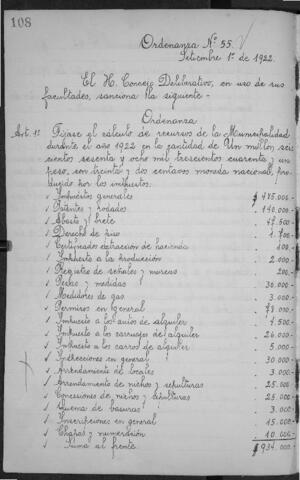 108
Ordenanza Nº 55.
Setiembre 1º de 1922.
El H. Concejo Deliberativo, en uso de sus
facultades, sanciona la siguiente -
Ordenanza
Art. 1º Fíjase el cálculo de recursos de la Municipalidad
durante el año 1922 en la cantidad de Un millon, seis
cientos sesenta y ocho mil trescientos cuarenta y un
peso, son treinta y dos centavos moneda nacional, pro-
ducido por los impuestos:
Impuestos generales $ 485.000-
Patentes y rodados 140.000-
Abasto y brete
Derecho de piso 1.700-
Certificados extracción de hacienda 100-
Impuesto a la producción 2.000-
Registro de señales y marcas 200-
Pesas y medidas 30.000-
Medidores de gas 3.000-
Permisos en general 78.000-
Impuesto a los autos de alquiler 4.500-
Impuesto a los carruajes de alquiler
Impuesto a los carros de alquiler 5.000-
Inspecciones en general 30.000-
Arrendamiento de locales 3.000-
Arrendamiento de nichos y sepulturas 25.000-
Concesiones de nichos y sepulturas 25.000-
Quemas de basuras 3.000-
Inscripciones en general 15.000-
Chapas y numeración 10.000-
Suma al frente $ 934.000-